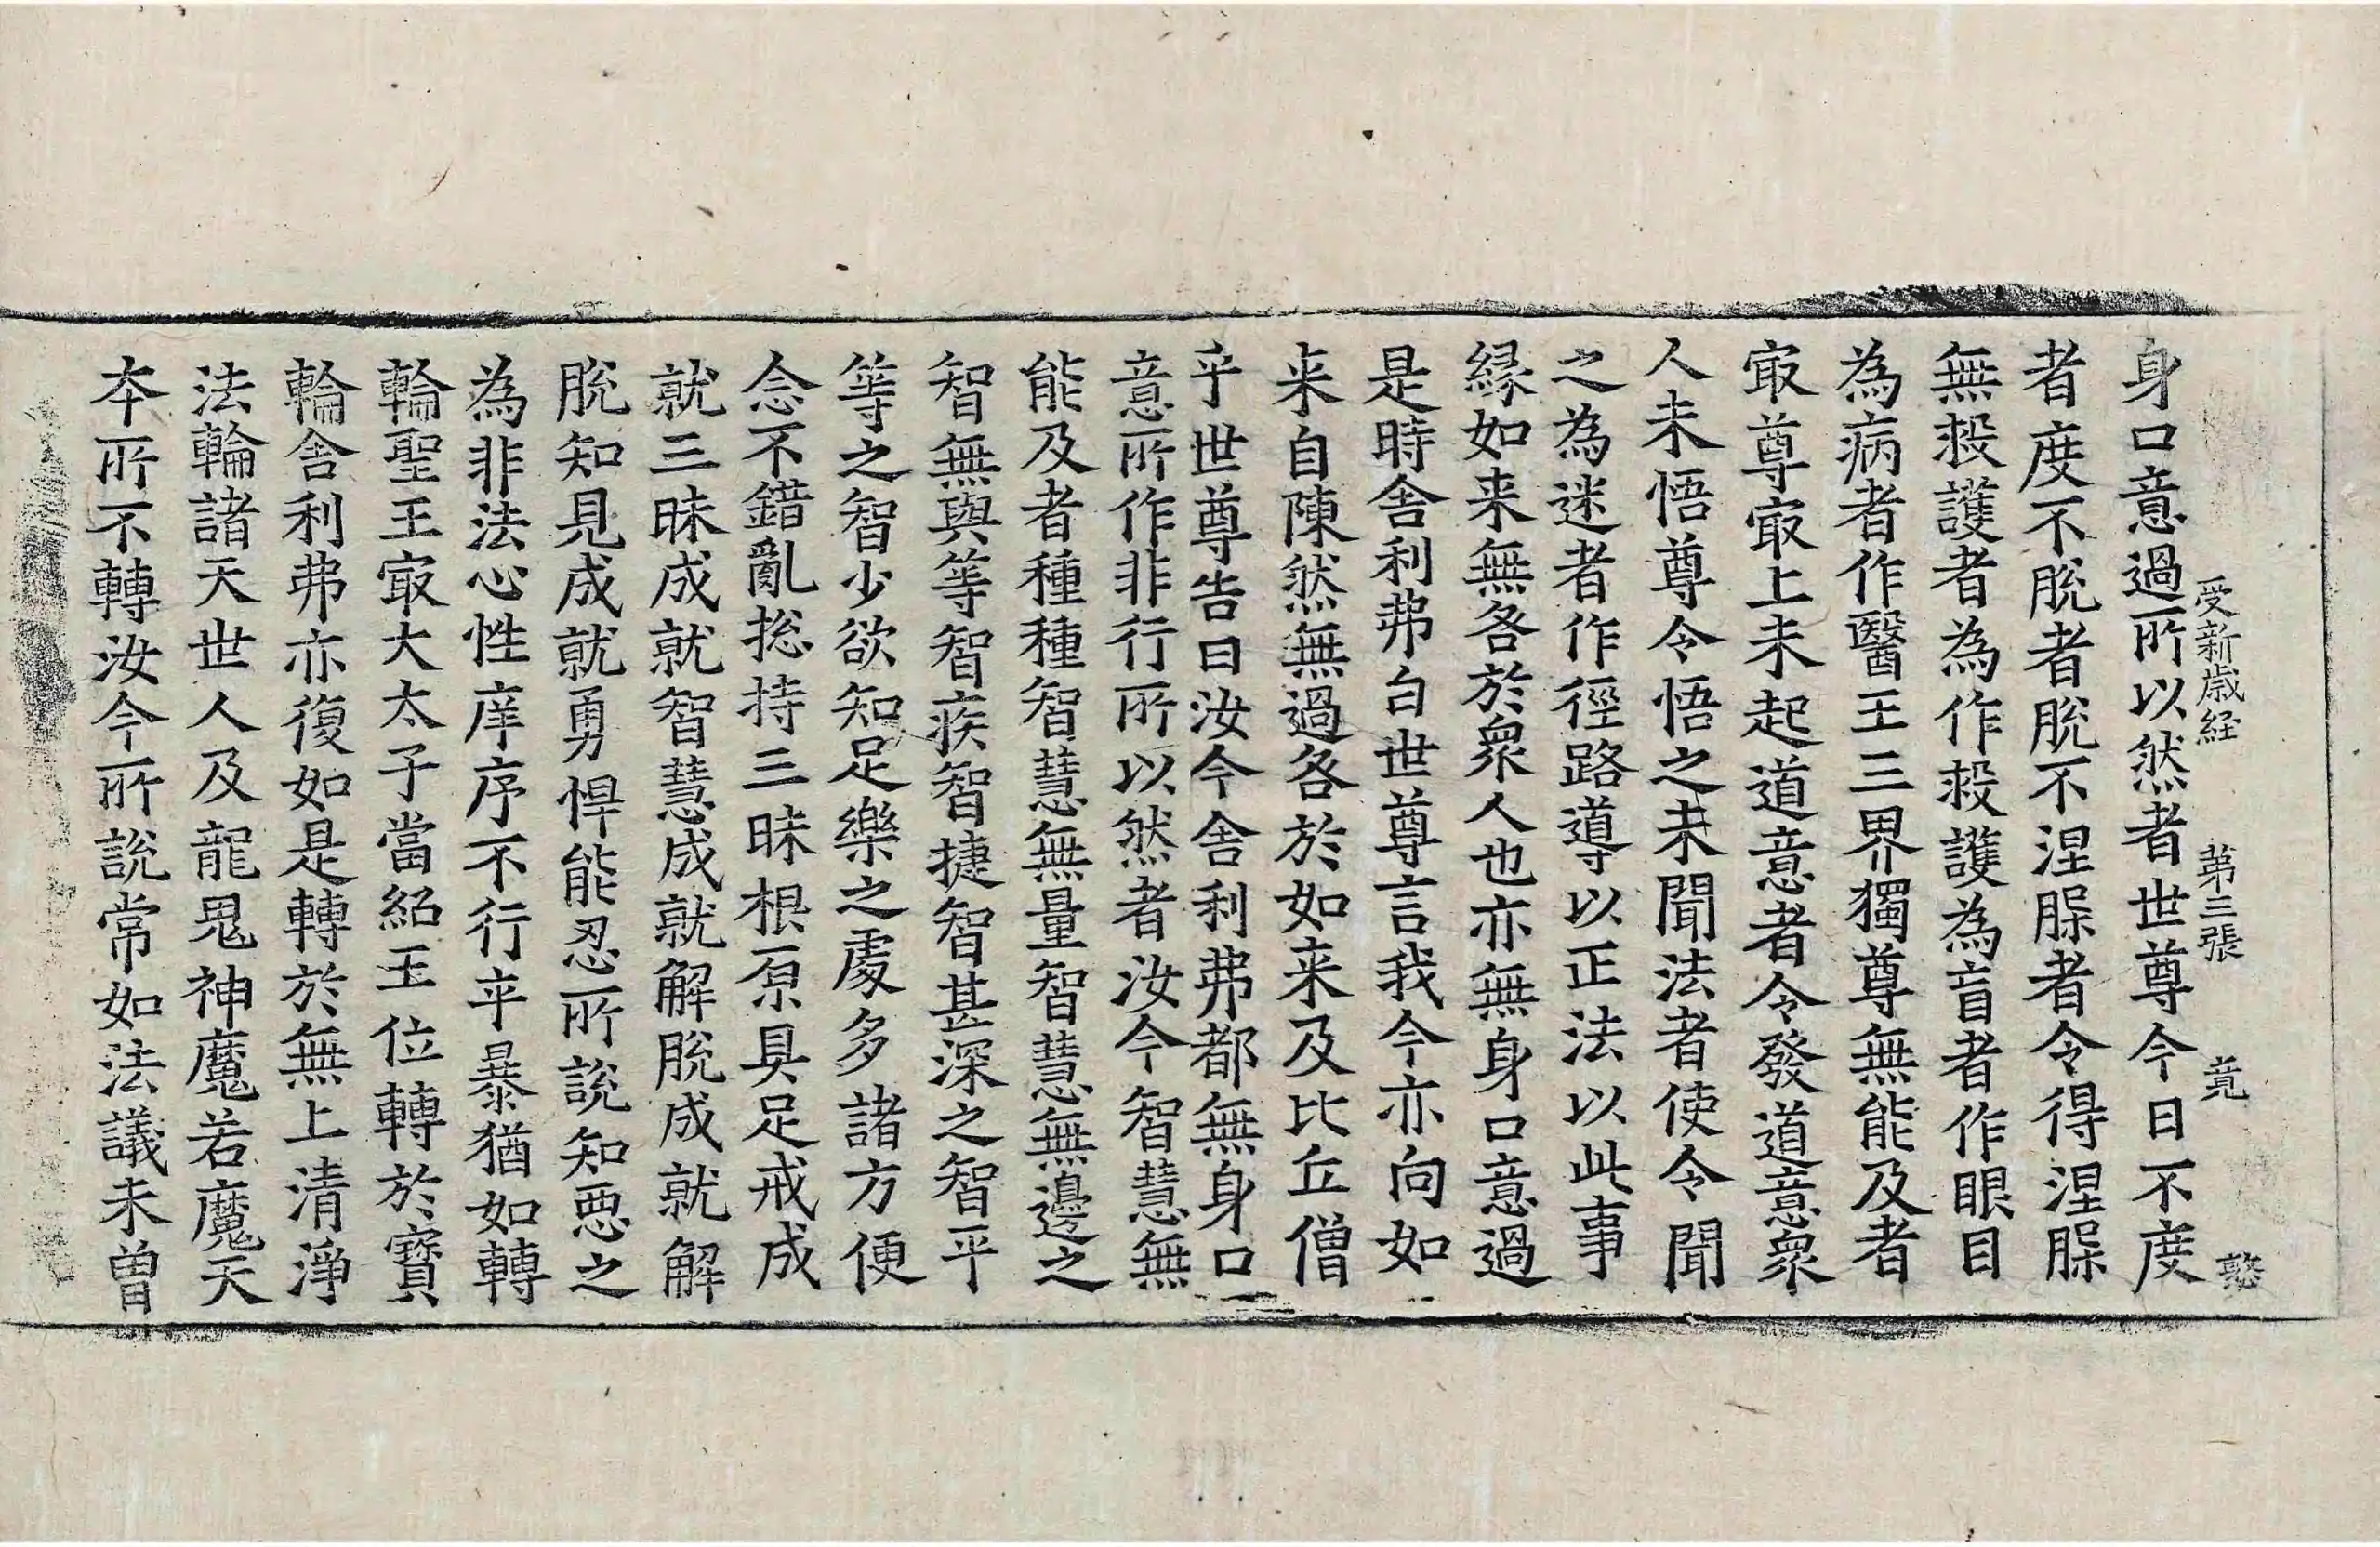 受新歲経 第三張 竟 憨
身口意過所以然者世尊今日不度
者度不脫者脫不涅脲者令得涅脲
無救護者為作救護為盲者作眼目
為病者作醫王三界獨尊無能及者
㝡尊㝡上未起道意者令發道意衆
人未悟尊令悟之未聞法者使令聞
之為迷者作徑路導以正法以此事
縁如来無咎於衆人也亦無身口意過
是時舍利弗白世尊言我今亦向如
来自陳然無過咎於如来及比丘僧
乎世尊告曰汝今舍利弗都無身口
意所作非行所以然者汝今智慧無
能及者種種智慧無量智慧無邊之
智無與等智疾智捷智甚深之智平
等之智少欲知足樂之處多諸方便
念不錯亂捴持三昧根原具足戒成
就三昧成就智慧成就解脫成就解
脫知見成就勇悍能忍所說知惡之
為非法心性庠序不行卒暴猶如轉
輪聖王㝡大太子當紹王位轉於寶
輪舍利弗亦復如是轉於無上清淨
法輪諸天世人及龍鬼神魔若魔天
本所不轉汝今所說常如法議未曾